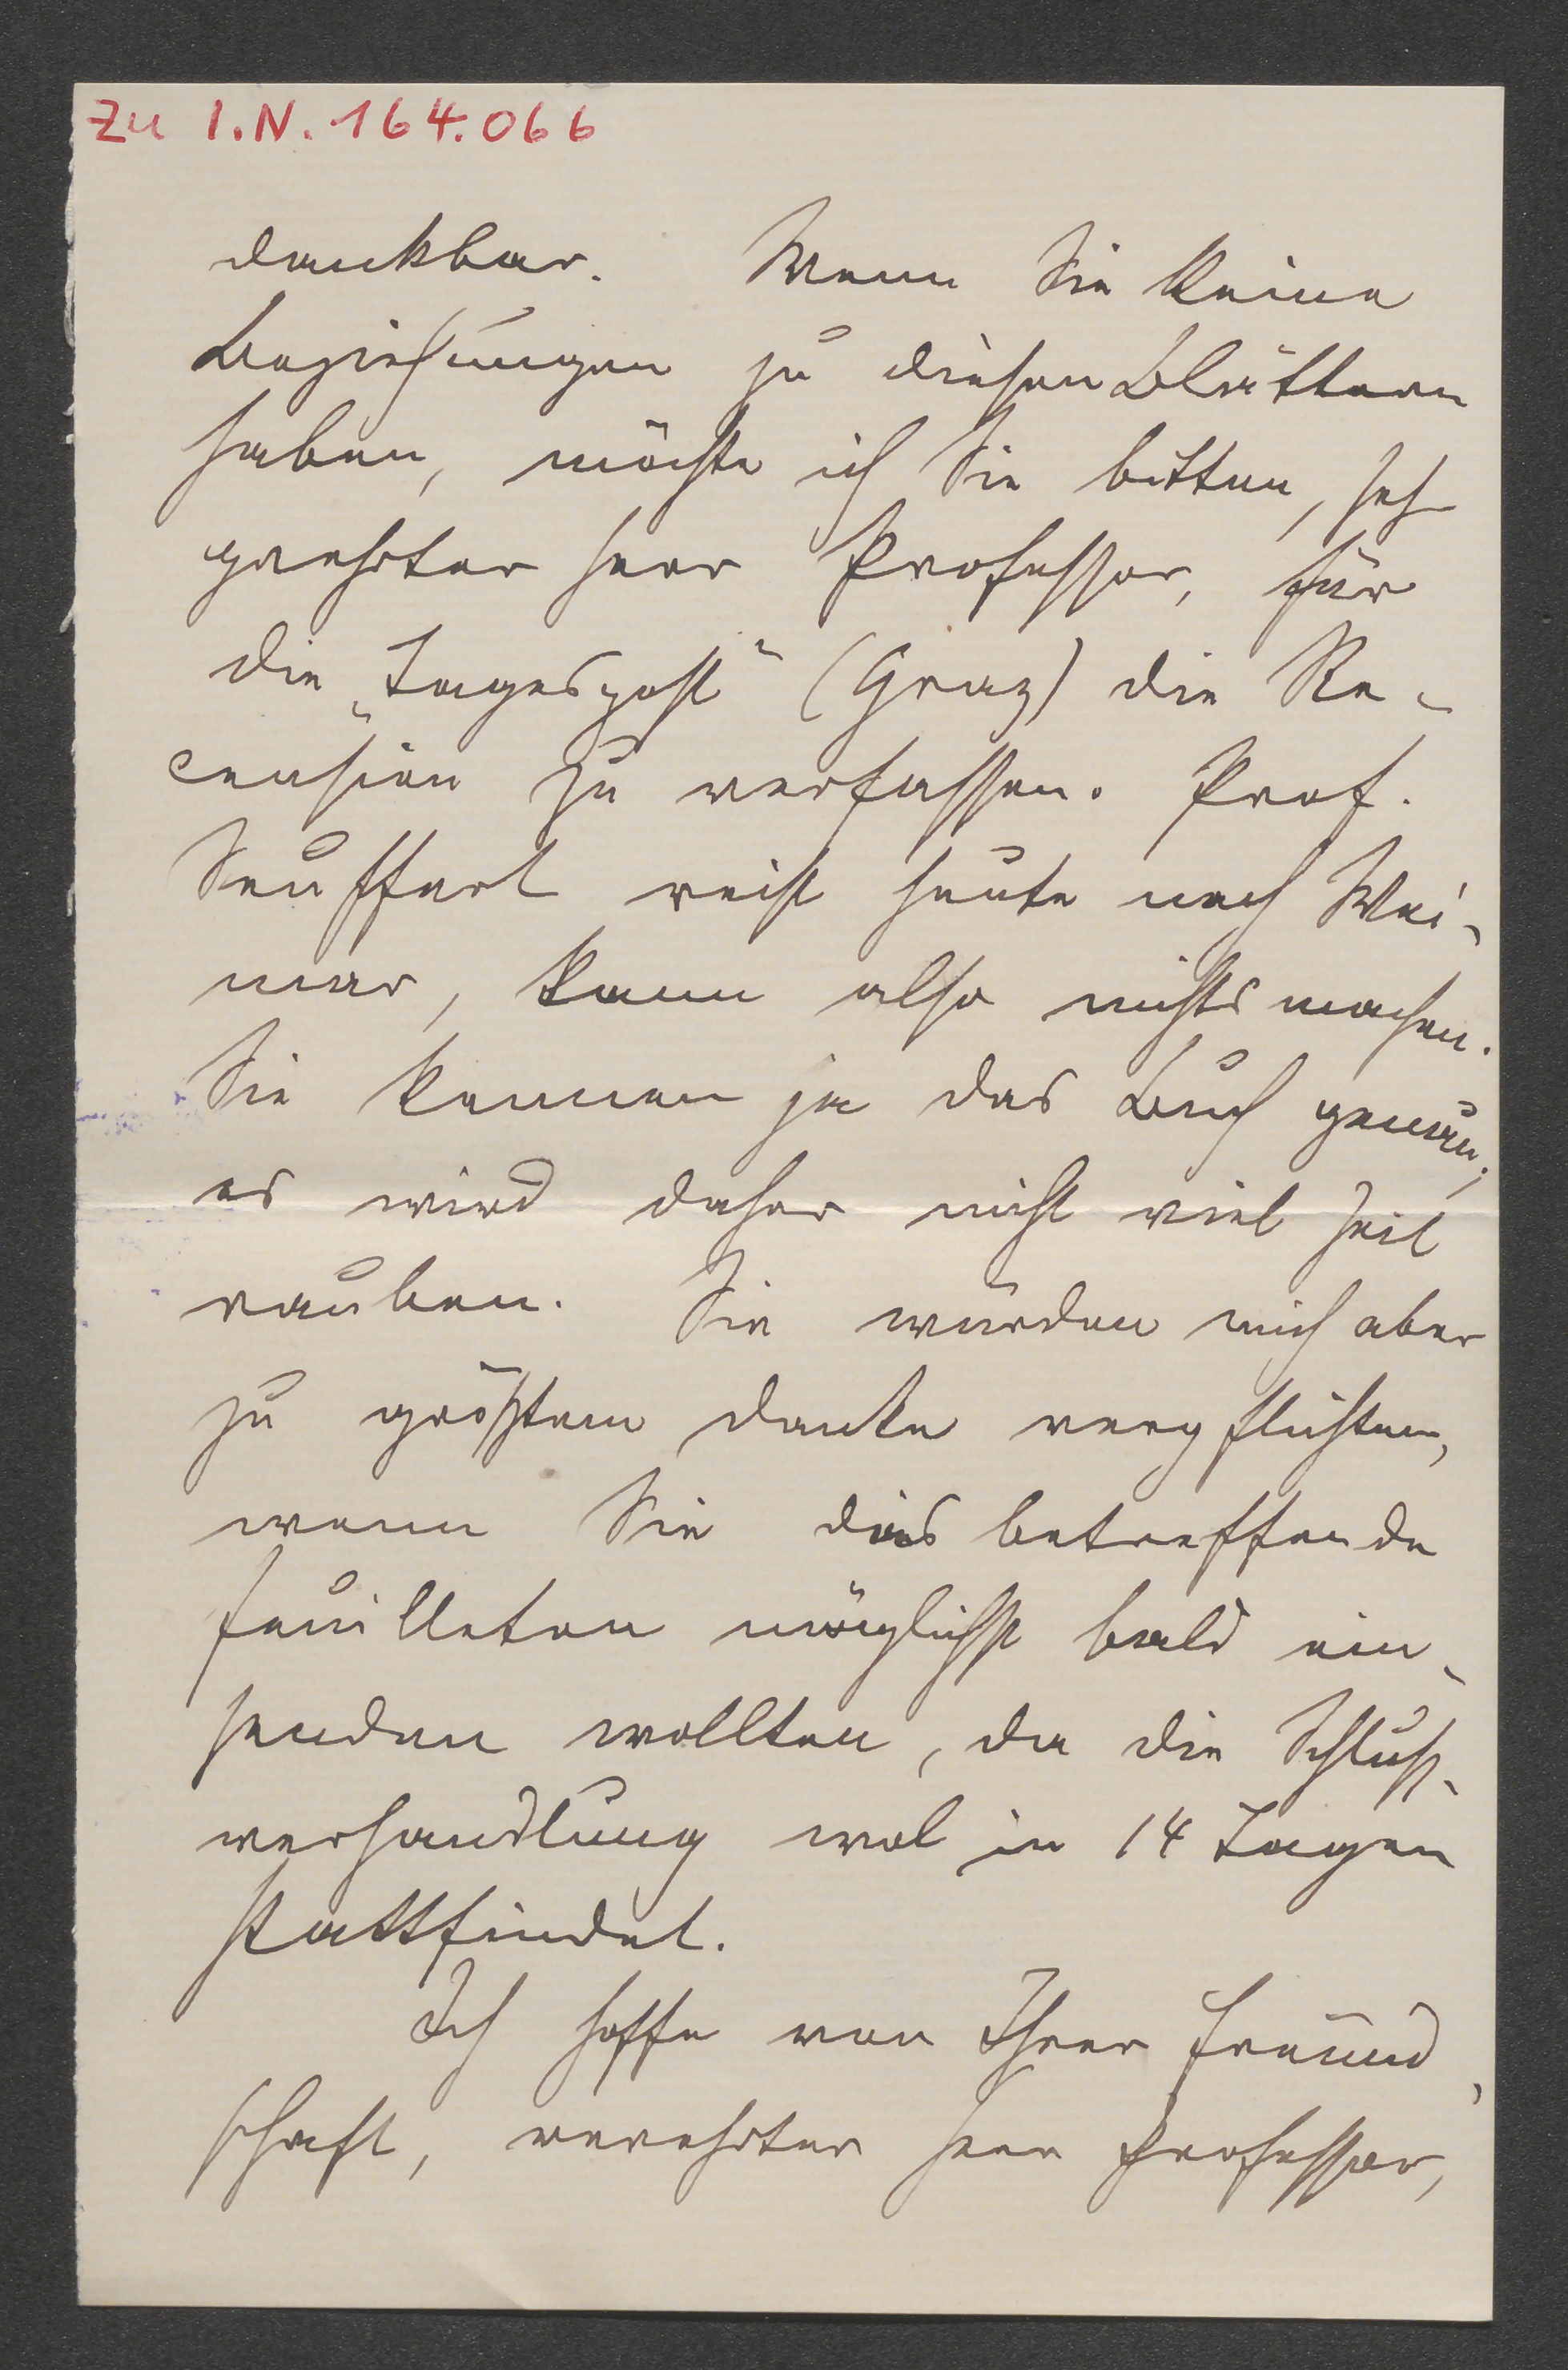 Zu I.N. 164.066
dankbar. Wenn Sie keine
Beziehungen zu diesen Blättern
haben, möchte ich Sie bitten, sehr
geehrter Herr Professor, für
die „Tagespost“ (Graz) die Re-
cension zu verfassen. Prof.
Seuffert reist heute nach Wei-
mar, kann also nichts machen.
Sie kennen ja das Buch genau;
es wird daher nicht viel Zeit
rauben. Sie würden mich aber
zu größtem Danke verpflichten,
wenn Sie das betreffende
Feuilleton möglichst bald ein-
senden wollten, da die Schluß-
verhandlung wol in 14 Tagen
stattfindet.
Ich hoffe von Ihrer Freund-
schaft, verehrter Herr Professor,